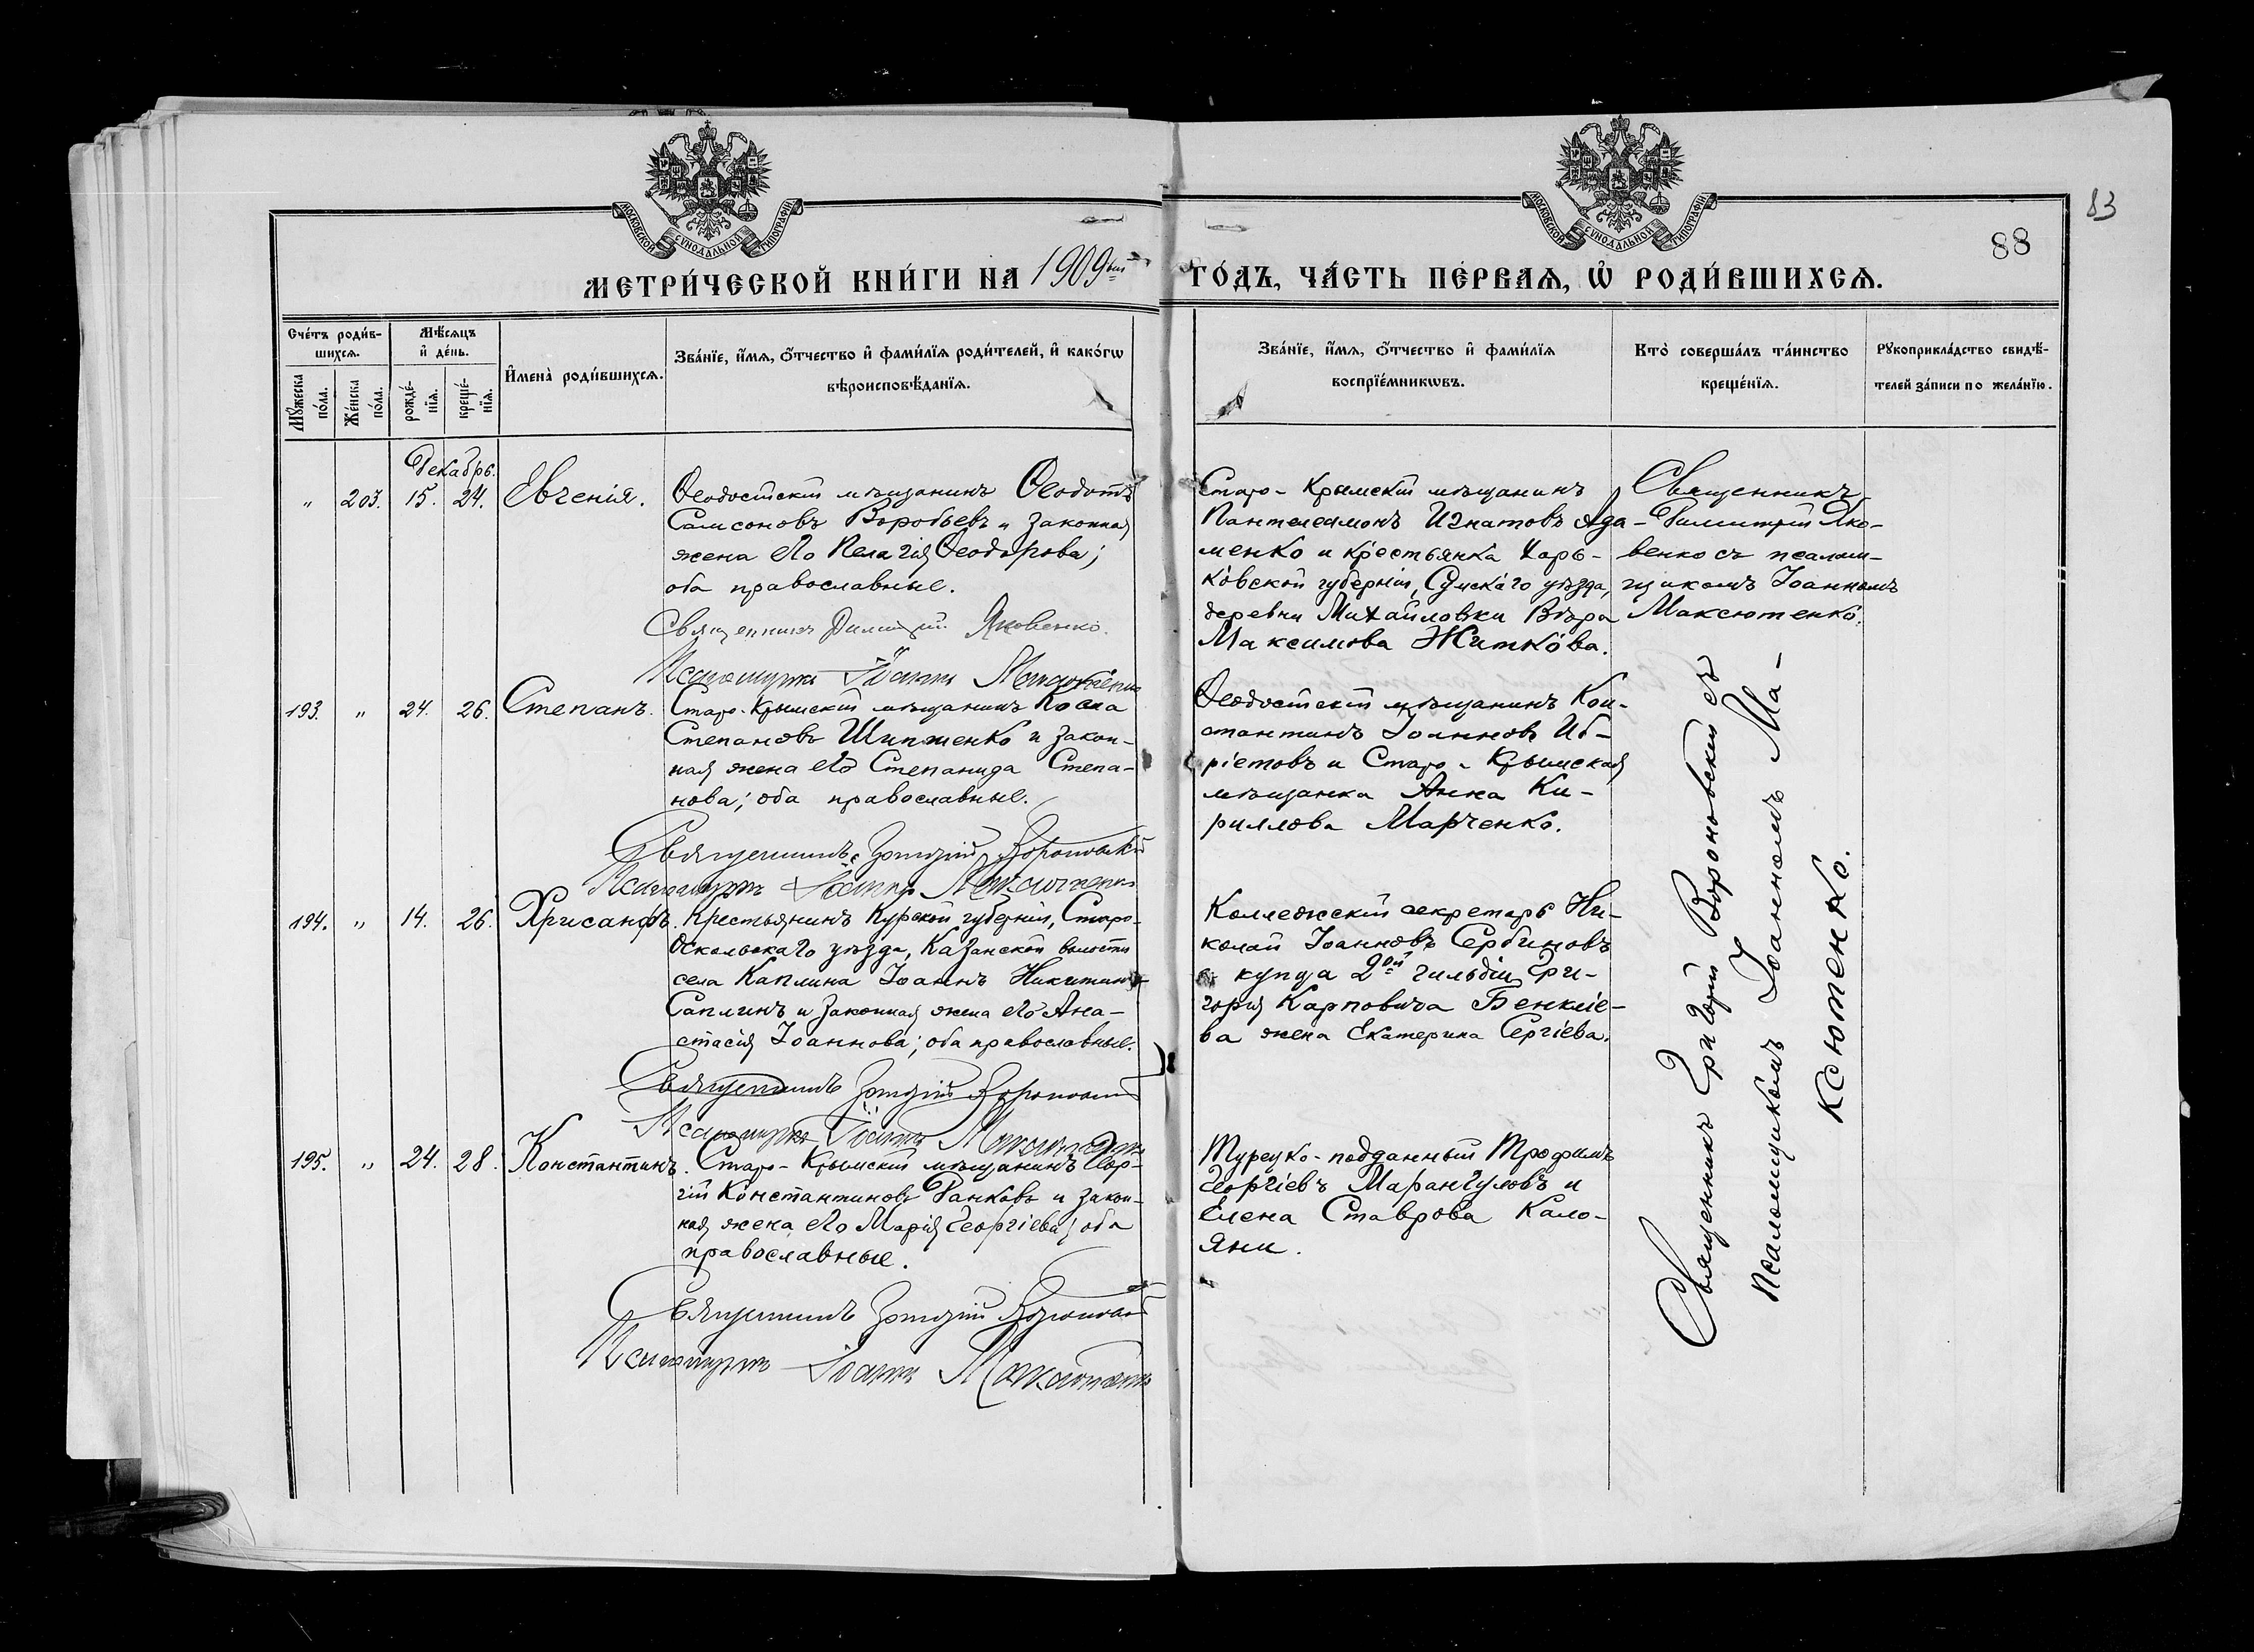 83
88
МОСКОВСКОЙ СѴНОДАЛЬНОЙ ТИПОГРАФІИ
МОСКОВСКОЙ СѴНОДАЛЬНОЙ ТИПОГРАФІИ
МЕТРИ́ЧЕСКОЙ КНИ́ГИ НА 1909 ГО́ДЪ, ЧА́СТЬ ПЕ́РВАѦ, Ѡ҆ РОДИ́ВШИХСѦ.
Сче́тъ роди́в-
шихсѧ.
Мꙋ́жеска по́ла.
Же́нска по́ла.
Мѣ́сѧцъ
и҆ де́нь.
рожде́-
нїѧ.
креще́-
нїѧ.
И҆мена̀ роди́вшихсѧ.
Зва́нїе, и҆́мѧ, ѻ҆́тчество и҆ фами́лїѧ роди́телей, и҆ како́гѡ
вѣроисповѣ́данїѧ.
Зва́нїе, и҆́мѧ, ѻ҆́тчество и҆ фами́лїѧ
воспрїе́мникѡвъ.
Кто̀ соверша́лъ та́инство
креще́нїѧ.
Рꙋкоприкла́дство свидѣ́-
телей за́писи по жела́нїю.
Декабрь.
„ 203. 15. 24. Евгенія.
Ѳеодосійскій мѣщанинъ Ѳеодотъ
Самсоновъ Воробьевъ и законная
жена его Пелагія Ѳеодорова;
оба православные.
Священникъ Димитрій Яковенко.
Псаломщикъ Іоаннъ Максютенко
Старо-Крымскій мѣщанинъ
Пантелеимонъ Игнатовъ Ада-
менко и крестьянка Харь-
ковской губерніи, Сумскаго уѣзда,
деревни Михайловки Вѣра
Максимова Житкова.
Священникъ
Димитрій Яко-
венко съ псалом-
щикомъ Іоанномъ
Максютенко.
193. „ 24. 26. Степанъ.
Старо-Крымскій мѣщанинъ
Степановъ Шипшенко и закон-
ная жена его Степанида Степа-
нова; оба православные.
Священникъ Григорій Вороновскій
Псаломщикъ Іоаннъ Максютенко
Ѳеодосійскій мѣщанинъ Кон-
стантинъ Іоанновъ Иб-
ріетовъ и Старо-Крымская
мѣщанка Анна Ки-
риллова Марченко.
194. „ 14. 26. Хрисанфъ.
Крестьянинъ Курской губерніи, Старо-
Оскольскаго уѣзда, Казанской волости
села Каплина Іоаннъ Никитинъ
Саплинъ и законная жена его Ана-
стасія Іоаннова; оба православные.
Священникъ Григорій Вороновскій
Псаломщикъ Іоаннъ Максютенко
Коллежскій секретарь Ни-
колай Іоанновъ Сербиновъ
и купца 2ой гильдіи Гри-
горія Карповича Бенкліе-
ва жена Екатерина Сергіева.
195. „ 24. 28. Константинъ.
Старо-Крымскій мѣщанинъ Геор-
гій Константиновъ Ранковъ и закон-
ная жена его Марія Георгіева; оба
православные.
Священникъ Григорій Вороновскій
Псаломщикъ Іоаннъ Максютенко
Турецко-подданный Трофимъ
Георгіевъ Марангуловъ и
Елена Ставрова Кало-
яни.
Священникъ Григорій Вороновскій съ
псаломщикомъ Іоанномъ Ма-
ксютенко.